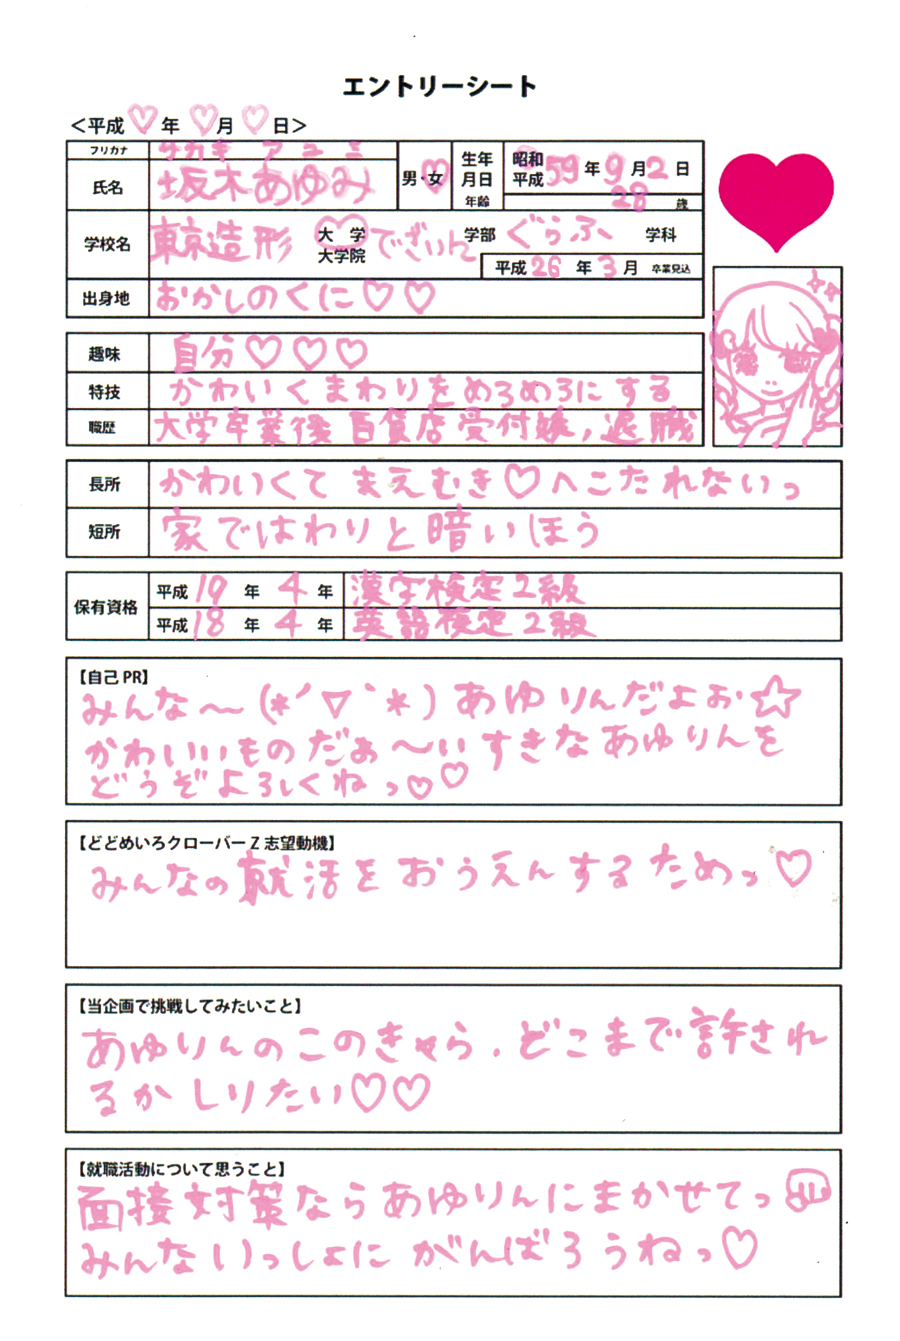 エントリーシート
<平成♡年♡月♡日>
フリガナ サカキ アユミ
氏名 坂木あゆみ 男・女 生年月日 昭和 平成 59年9月2日
年齢 28 歳
学校名 東京造形 大学 大学院 でざいん学部 ぐらふ 学科
平成26年3月 卒業見込
出身地 おかしのくに♡♡
趣味 自分♡♡♡
特技 かわいくまわりをめろめろにする
職歴 大学卒業後百貨店受付嬢,退職
長所 かわいくてまえむき♡へこたれないっ
短所 家ではわりと暗いほう
保有資格 平成19年4年 漢字検定2級
平成18年4年 英語検定2級
【自己PR】
みんな〜(*´▽`*)あゆりんだよぉ☆
かわいいものだぁ〜いすきなあゆりんを
どうぞよろしくねっ♡♡
【どどめいろクローバーZ志望動機】
みんなの就活をおうえんするためっ♡
【当企画で挑戦してみたいこと】
あゆりんのこのきゃら、どこまで許され
るかしりたい♡♡
【就職活動について思うこと】
面接対策ならあゆりんにまかせてっ
みんないっしょにがんばろうねっ♡